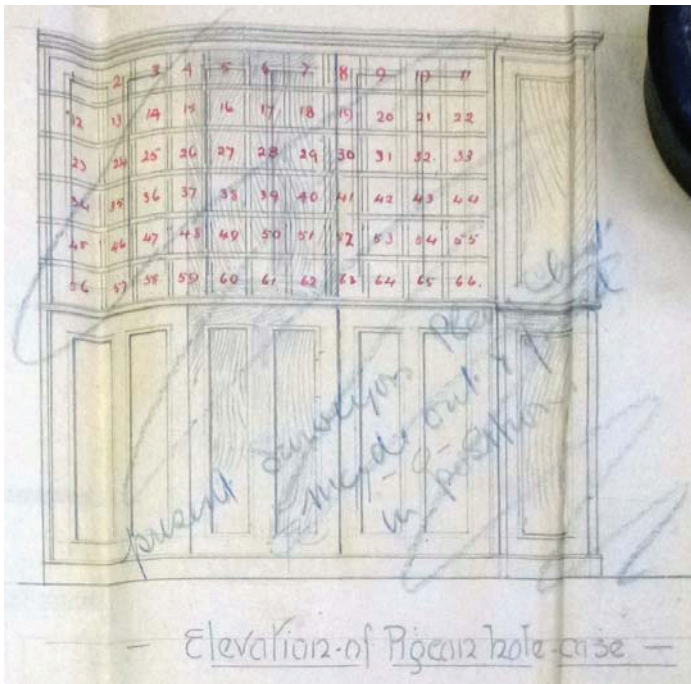 2 3 4 5 6 7 8 9 10 11
12 13 14 15 16 17 18 19 20 21 22
23 24 25 26 27 28 29 30 31 32. 33
34 35 36 37 38 39 40 41 42 43 44
45 46 47 48 49 50 51 52 53 54 55
56 57 58 59 60 61 62 63 64 65 66.
present
made out &
in position
- Elevation of Pigeon hole case -